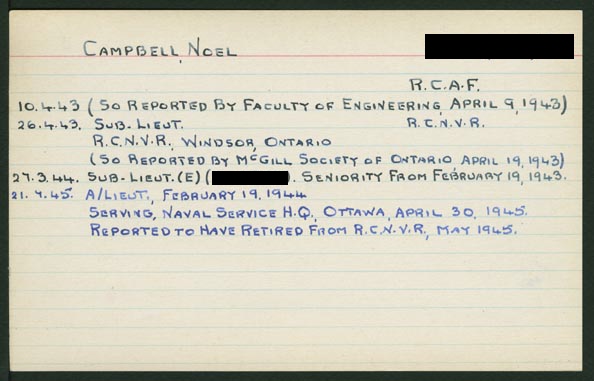 CAMPBELL, NOEL
R.C.A.F.
10.4.43 (SO REPORTED BY FACULTY OF ENGINEERING, APRIL 9, 1943)
26.4.43. SUB-LIEUT. R.C.N.V.R.
R.C.N.V.R., WINDSOR, ONTARIO
(SO REPORTED BY MCGILL SOCIETY OF ONTARIO, APRIL 19, 1943)
27.3.44. SUB-LIEUT.(E) ( ). SENIORITY FROM FEBRUARY 19, 1943.
21.7.45. A/LIEUT., FEBRUARY 19, 1944
SERVING, NAVAL SERVICE H.Q., OTTAWA, APRIL 30, 1945.
REPORTED TO HAVE RETIRED FROM R.C.N.V.R., MAY 1945.